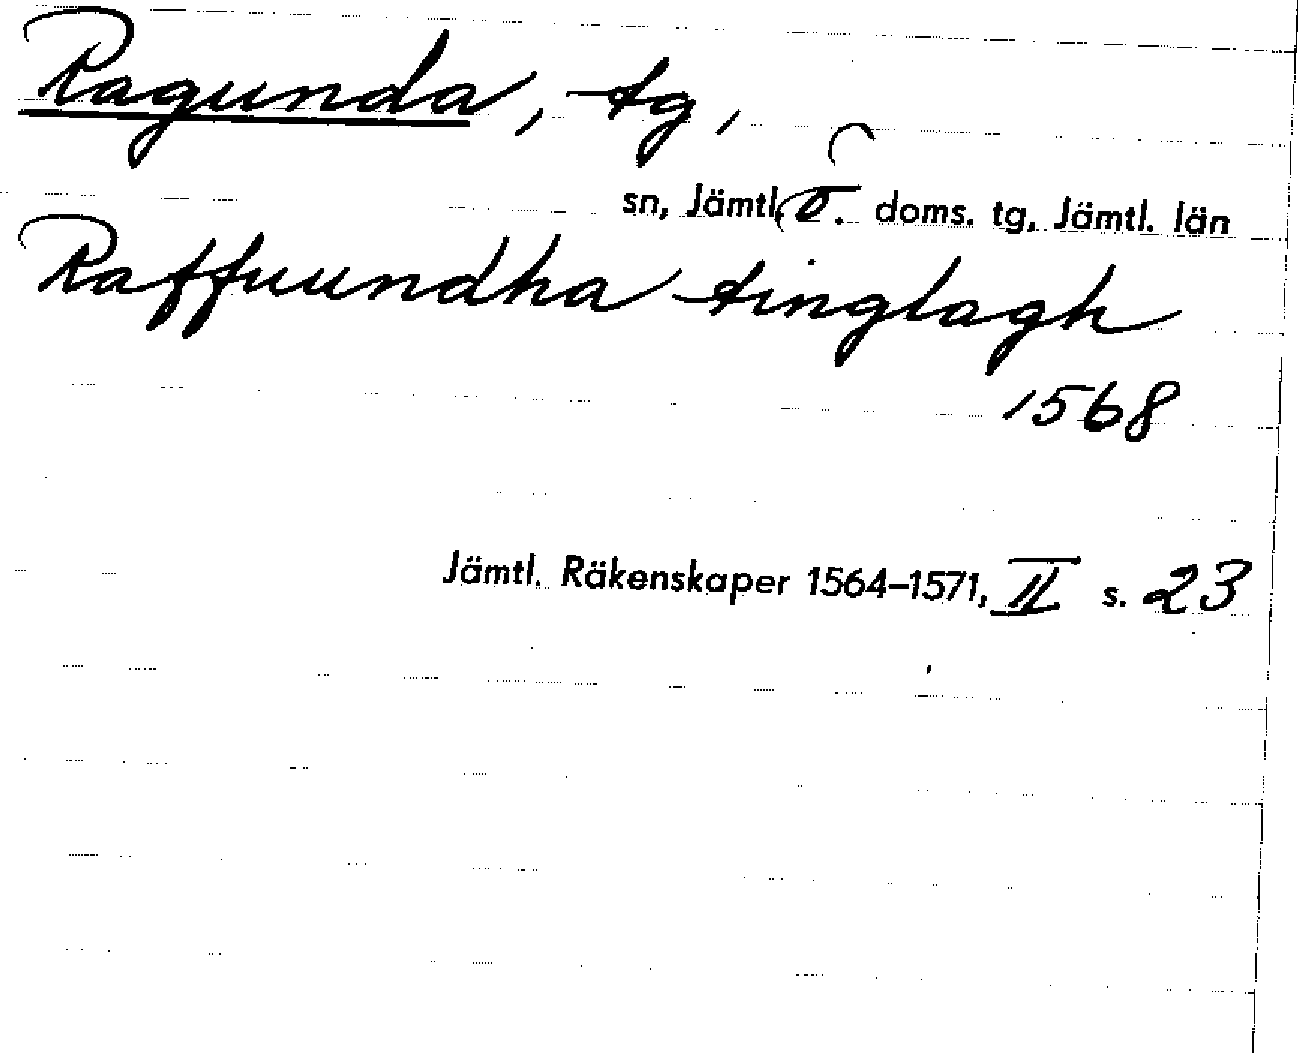 Ragunda, tg,
sn, Jämtl. Ö. doms. tg, Jämtl. län
Raffuundha tinglagh
1568
Jämtl. Räkenskaper 1564–1571, II s. 23